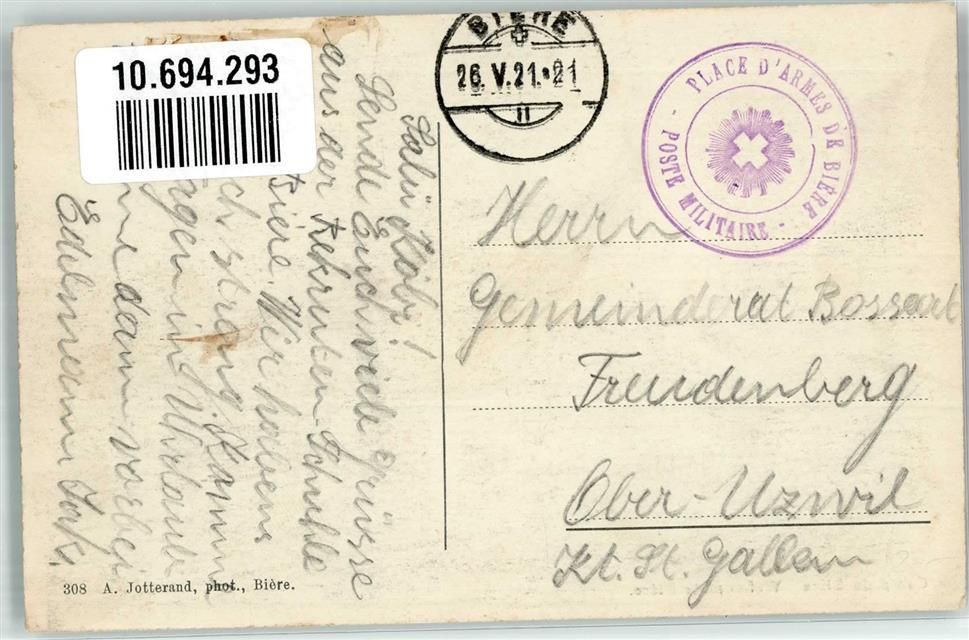 10.694.293
BIÈRE
26.V.21.21
PLACE D'ARMES DE BIÈRE
- POSTE MILITAIRE -
Salü Köbi!
Sende Euch viele grüsse
aus der Rekruten-Schuhle
Bière. Wir haben
streng. Kann
in Urlaub
dann vorbei
Edelmann
Herrn
Gemeinderat Bossart
Freudenberg
Ober-Uzwil
Kt. St. Gallen
308 A. Jotterand, phot., Bière.